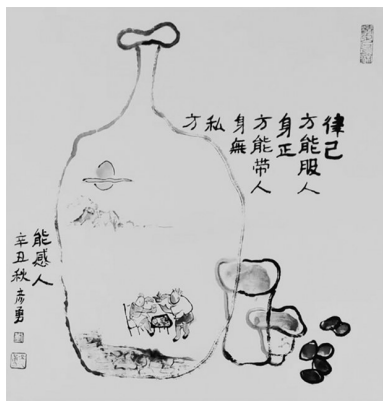 律己
方能服人
身正
方能带人
身無
私
方
能感人
辛丑秋彦勇